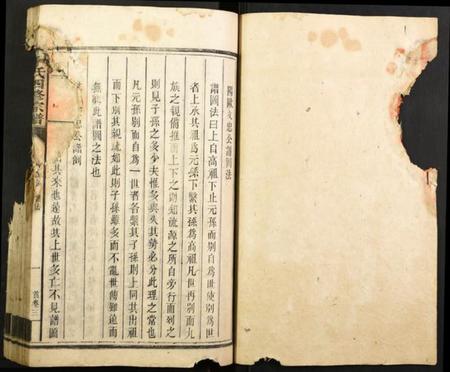 歐文忠公譜圖法
譜圖法曰上自高祖下止元孫而別自為世使別為世
者上承其祖為元孫下繫其孫為高祖凡世再別而九
族之親備推而上下之則知源流之所自旁行而列之
則見子孫之多少夫惟多與久其勢必分此理之常也
凡元孫別而自為一世者各繫其子孫則上同其出祖
而下別其親疏如此則子孫雖多而不亂世傳雖遠而
無窮此譜圖之法也
忠公譜例
其來也遠故其上世多亡不見譜圖
氏四修宗譜
譜法
首卷三